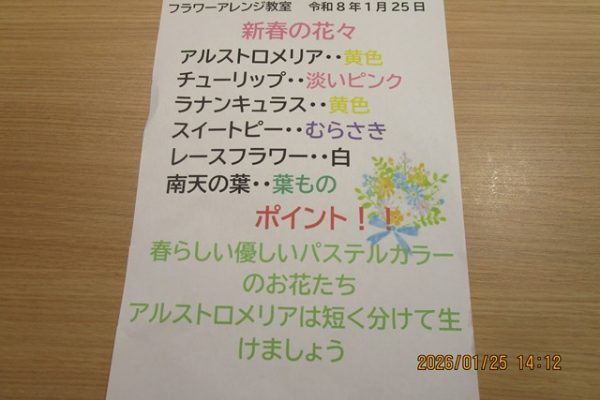 フラワーアレンジ教室　令和８年１月２５日
新春の花々
アルストロメリア・・黄色
チューリップ・・淡いピンク
ラナンキュラス・・黄色
スイートピー・・むらさき
レースフラワー・・白
南天の葉・・葉もの
ポイント！！
春らしい優しいパステルカラー
のお花たち
アルストロメリアは短く分けて生
けましょう
2026/01/25 14:12